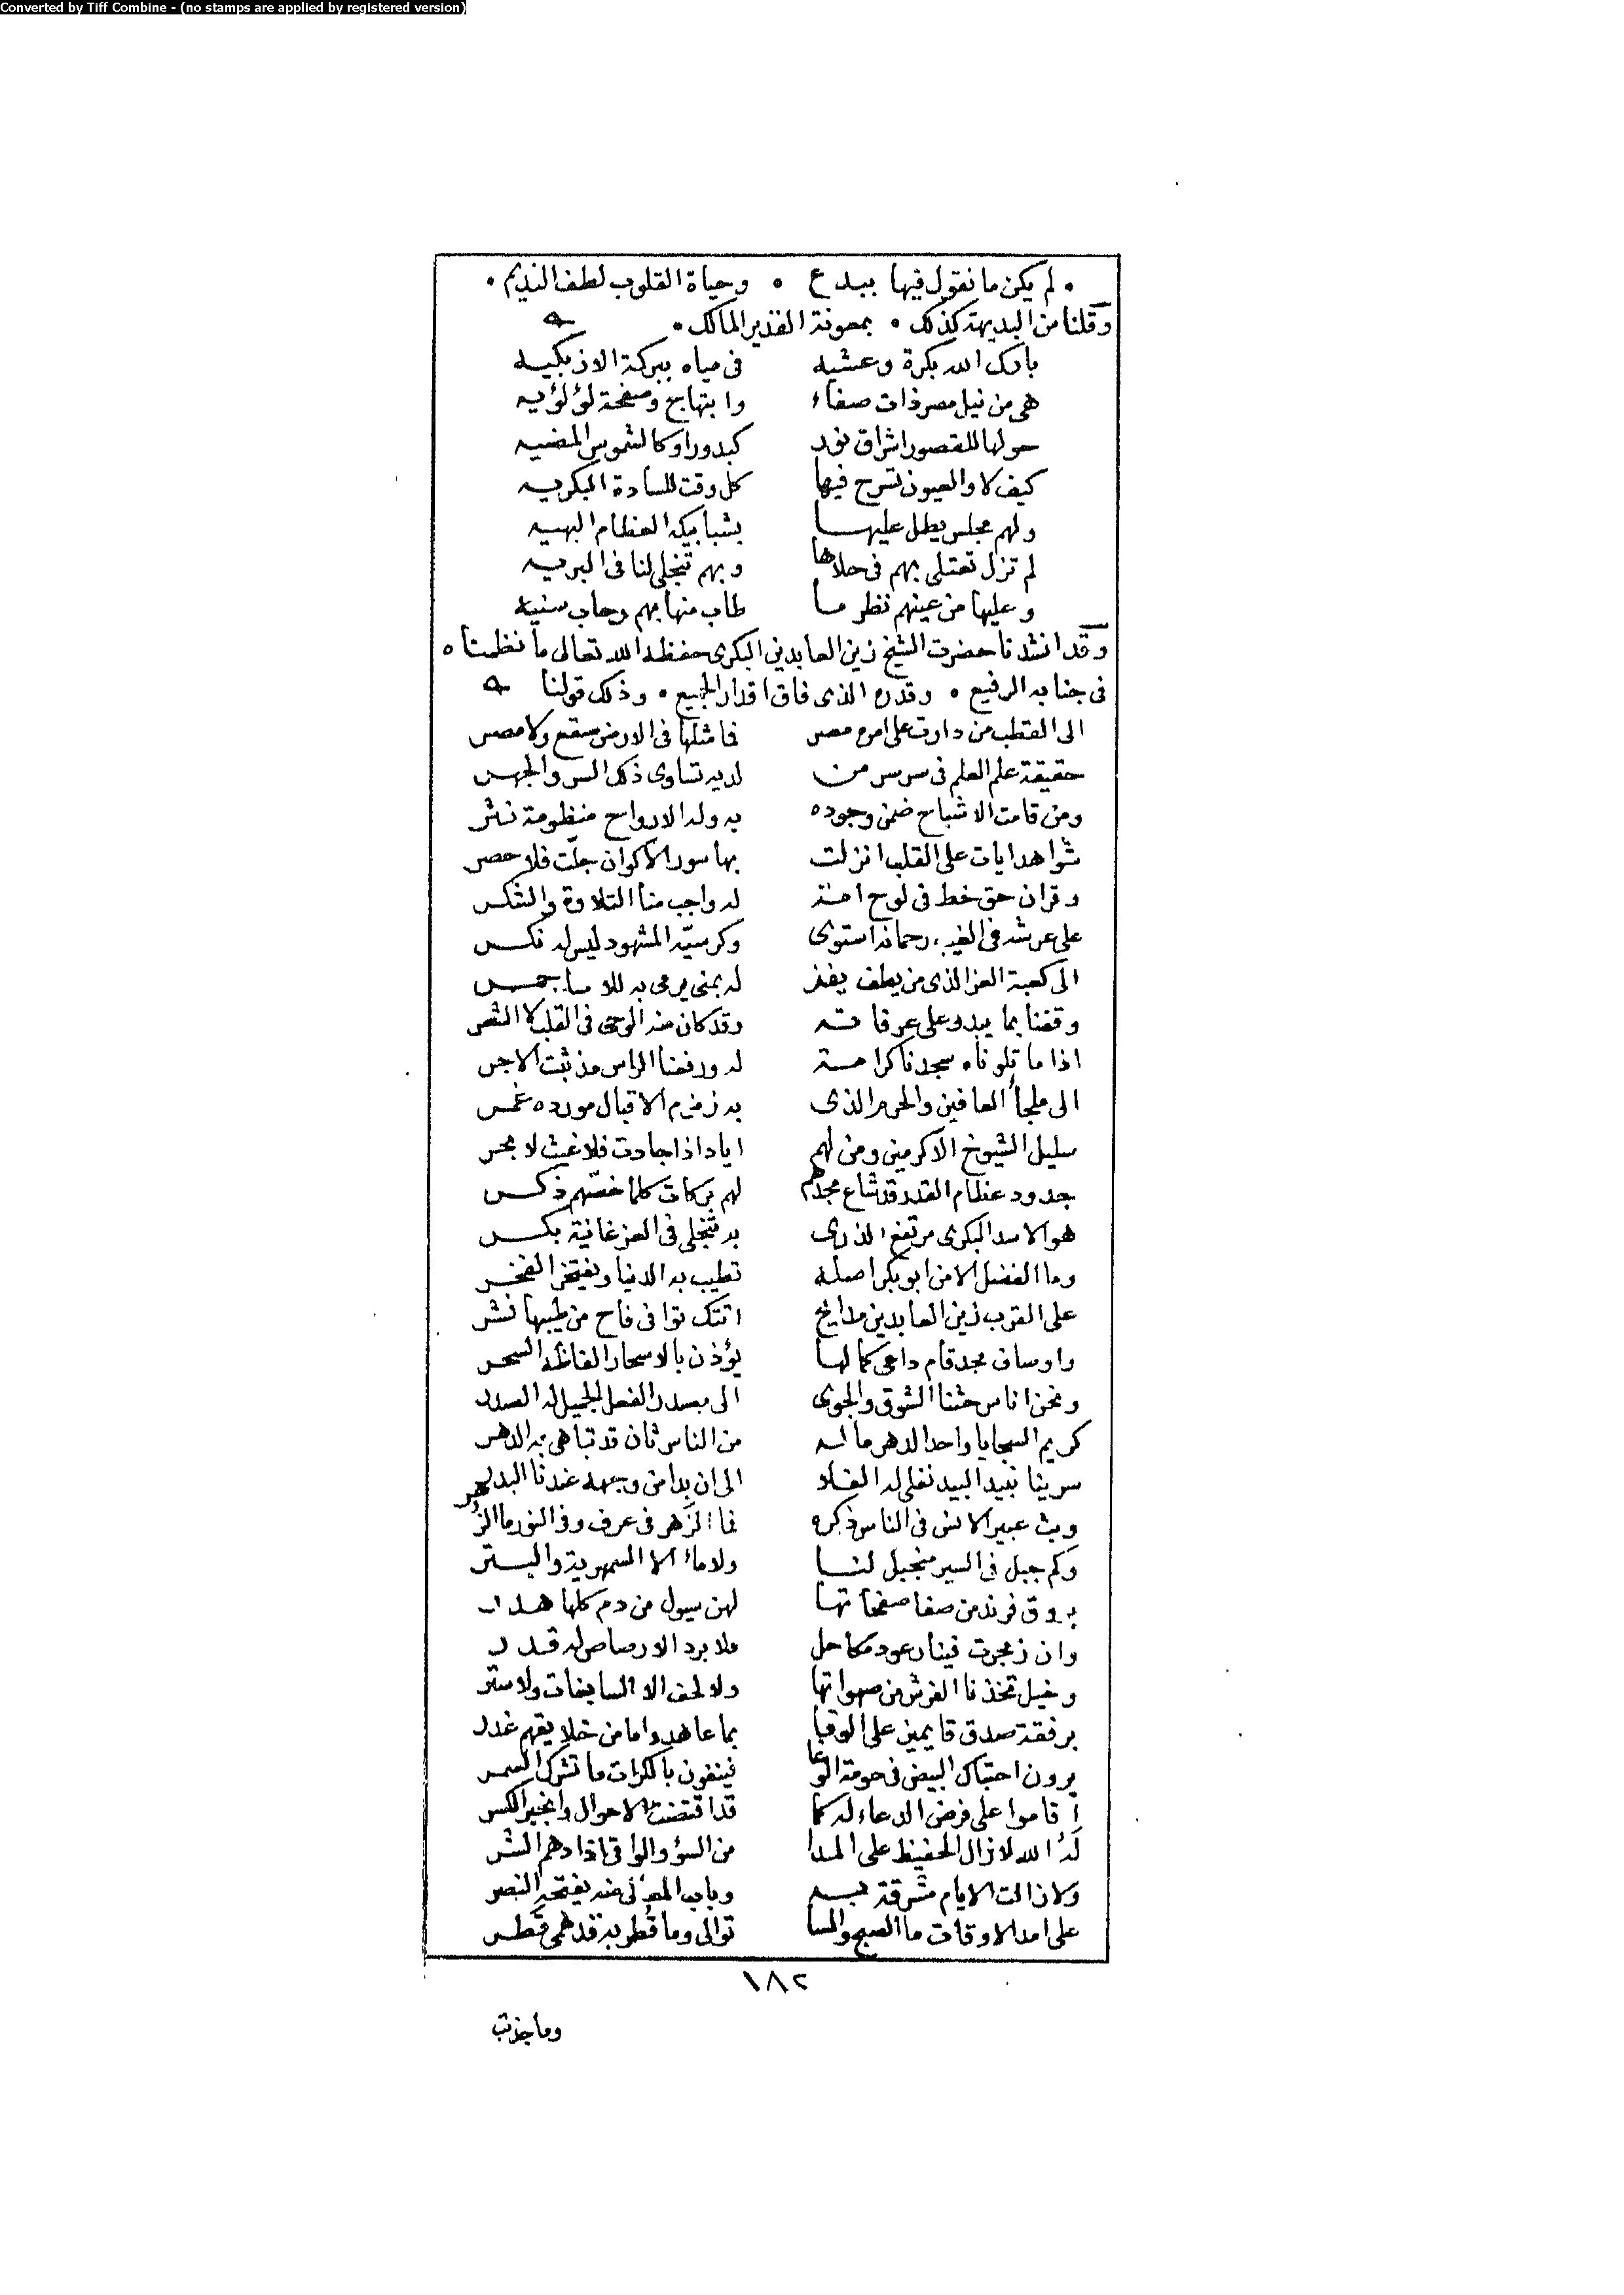 Converted by Tiff Combine - (no stamps are applied by registered version)
• لم يكن ما نقول فيها ببدع • وحياة القلوب لطف النديم •
وقلنا من البديهة كذلك • بمعونة القدير المالك •
بارك الله بكرة وعشيه في مياه ببركة الازبكيه
هي من نيل مصر ذات صفاء وابتهاج وصفحة لؤلؤيه
حولها للقصور اشراق نور كبدور او كالشموس المضيه
كيف لا والعيون تسرح فيها كل وقت للسادة البكريه
ولهم مجلس يطل عليها بشبابيكه العظام البهيه
لم تزل تعتلي بهم في حلاها وبهم تنجلي لنا في البريه
وعليها من عينهم نظر ما طاب منها بهم رحاب سنيه
وقد انشدنا حضرت الشيخ زين العابدين البكري حفظه الله تعالى ما نظمناه
في جنابه الرفيع • وقدره الذي فاق اقدار الجميع • وذلك قولنا
الى القطب من دارت على امره مصر فما مثلها في الارض سقع ولا مصر
حقيقة علم العلم في سر سر من لديه تساوى ذلك السر والجهر
ومن قامت الاشباح ضمن وجوده به وله الارواح منظومة نثر
شواهد ايات على القلب انزلت بها سور الاكوان جلّت فلا حصر
وقران حق خط في لوح امنه له واجب منا التلاوة والشكر
على عرشه في الغيب رحمانه استوى وكرسيّه المشهود ليس له نكر
الى كعبة العز الذي من يطف يفز له بمنى يرمى به للاسا جمر
وقفنا بما يبدو على عرفاته وقد كان منه الوحي في القلب لا الشعر
اذا ما تلوناه سجدنا كرامة له ورفعنا الراس مذ ثبت الاجر
الى ملجأ العافين والحرم الذي به زمزم الاقبال مورده غمر
سليل الشيوخ الاكرمين ومن لهم اياد اذا جادت فلا غيث لا بحر
جدود عظام القدر قد شاع مجدهم لهم بركات كلما خصّهم ذكر
هو الاسد البكري مرتفع الذرى به تنجلي في العز غانية بكر
وما الفضل الا من ابو بكر اصله تطيب به الدنيا ويفتخر الفخر
على القرب زين العابدين مدايح اتتك توافي فاح من طيبها نشر
واوصاف مجد قام داعي كمالها يؤذن بالاسحار الفاظه السحر
ونحن اناس حثنا الشوق والجوى الى مصدر الفعل الجميل له الصدر
كريم السجايا واحد الدهر ما له من الناس ثان قد تباهى به الدهر
سرينا نبيد البيد نفلي له الفلا الى ان بدا من وجهه عندنا البدر
وبث عبير الانس في الناس ذكره فما الزَهر في عرف وفي النور ما الزُهر
وكم جبل في السير منجبل لنا ولا ماء الا السمهرية والبتر
بروق فرند من صفا صفحاتها لهن سيول من دم كلها هدر
وان زمجرت فينا رعود مكاحل فلا برد الا رصاص له قدر
وخيل تخذنا الفرش من صهواتها ولا لحف الا السابغات ولا ستر
برفقة صدق قايمين على الوفا بما عاهدوا ما من خلايقهم غدر
يرون احتباك البيض في حومة الوغا فينفون بالكرات ما تشرك السمر
اقاموا على فرض الدعاء له كما قد اقتضت الاحوال وانجبر الكسر
لهُ الله لا زال الحفيظ على المدا من السؤ والواقي اذا دهم الشر
ولا زالت الايام مشرقة به وباب المعالي عنه يفتحه النصر
على امد الاوقات ما الصبح والمسا توالى وما قُطر به قد همى قَطر
١٨٢
وما جذبت